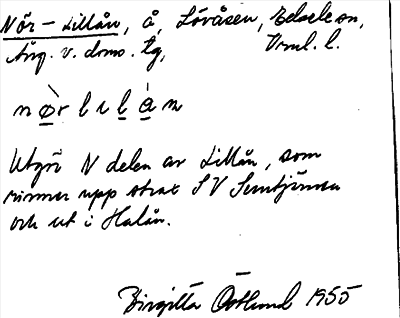 Nör-Lillån, å, Lövåsen, Edsele sn,
Ång. v. doms. tg, Vrml. l.
nørlılån
Utgör N delen av Lillån, som
rinner upp strax SV Semtjärnen
och ut i Halån.
Birgitta Östlund 1955